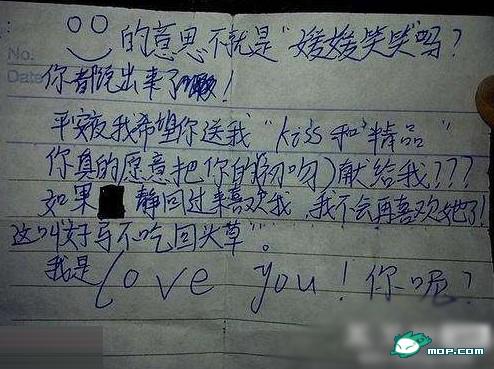 No.
的意思不就是"媛媛笑笑"吗?
Date
你都说出来了!
平安夜我希望你送我"kiss和"精品"
你真的愿意把你的(初吻)献给我???
如果 静回过来喜欢我,我不会再喜欢她了!
这叫好马不吃回头草"。
我是love you!你呢?
mop.com